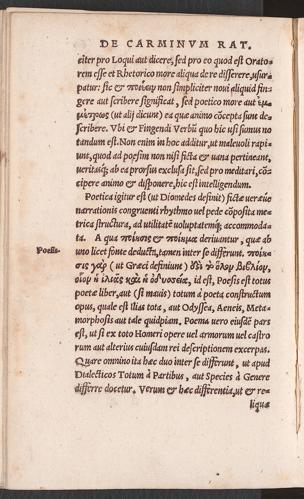 DE CARMINVM RAT.
citer pro Loqui aut dicere, sed pro eo quod est Orato-
rem esse et Rhetorico more aliqua de re disserere, usur-
patur: sic & ποιεῖν non simpliciter noui aliquid fin-
gere aut scribere significat, sed poetico more aut
(ut alij dicunt) ea quæ animo cõcepta sunt de-
scribere. Vbi & Fingendi Verbũ quo hic usi sumus no
tandum est. Non enim in hoc additur, ut maleuoli rapi-
unt, quod ad poesim non nisi ficta & uana pertineant,
ueritasq; ab ea prorsus exclusa sit, sed pro meditari, cõ-
cipere animo & disponere, hic est intelligendum.
Poetica igitur est (ut Diomedes definit) fictæ ueræue
narrationis congruenti rhythmo uel pede cõposita me-
trica structura, ad utilitatẽ uoluptatemq; accommoda-
ta. A qua ποίησις & ποίημα deriuantur, quæ ab
uno licet fonte deducta, tamen inter se differunt. ποίη-
Poesis.
σις γὰρ (ut Græci definiunt) ὅλον βιβλίον,
οἷον ἡ ἰλιὰς καὶ ἡ ὀδυσσεία, id est, Poesis est totus
poetæ liber, aut (si mauis) totum à poeta constructum
opus, quale est Ilias tota, aut Odyssea, Aeneis, Meta-
morphosis aut tale quidpiam. Poema uero eiusdẽ pars
est, ut si ex toto Homeri opere uel armorum uel castro
rum aut alterius cuiusdam rei descriptionem excerpas.
Quare omnino ita hæc duo inter se differunt, ut apud
Dialecticos Totum à Partibus, aut Species à Genere
differre docetur. Verum & hæc differentia, ut & re-
liquæ